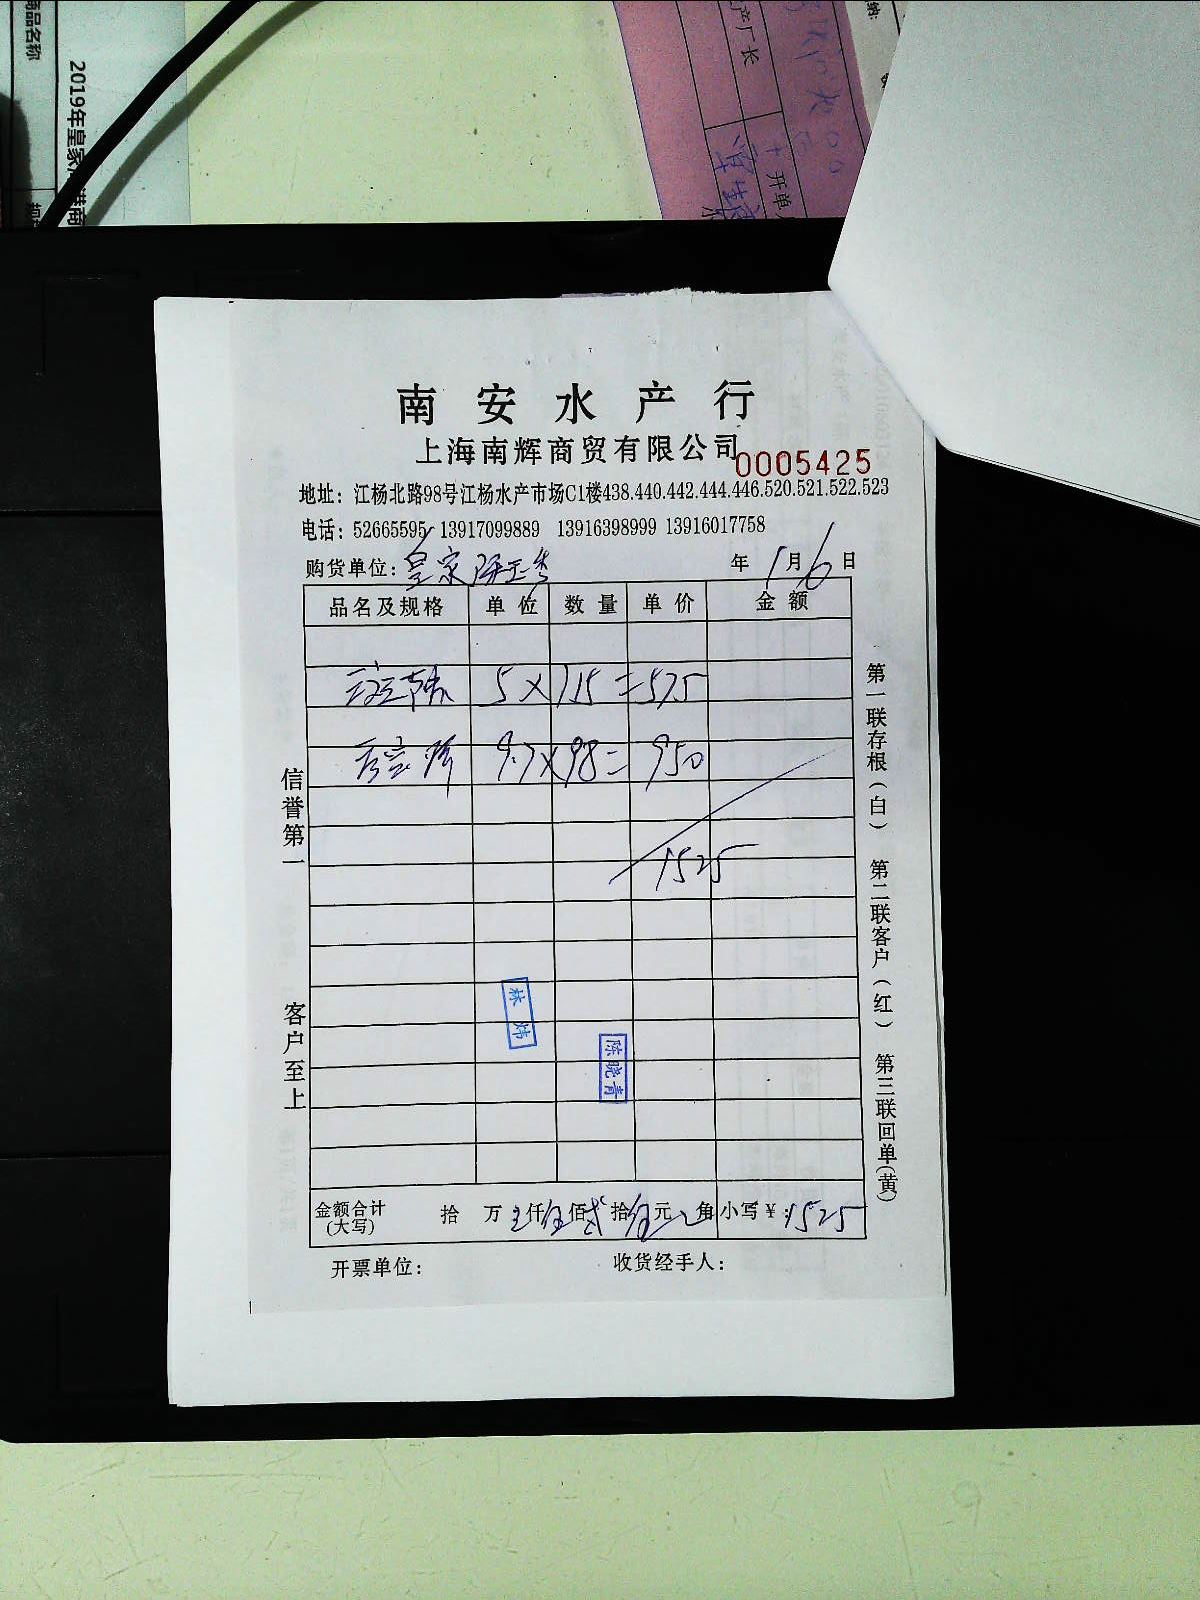 商品名称
2019年皇家
产厂长
开单人
南安水产行
上海南辉商贸有限公司
0005425
地址：江杨北路98号江杨水产市场C1楼438.440.442.444.446.520.521.522.523
电话：52665595 13917099889 13916398999 13916017758
购货单位：皇家 年 1月6日
品名及规格 单位 数量 单价 金额
5×115=575
9.7×98=950
1525
林炜
陈晓青
金额合计(大写) 拾 万 仟伍佰贰拾伍元 角 小写￥：1525
开票单位： 收货经手人：
信誉第一
客户至上
第一联存根(白)
第二联客户(红)
第三联回单(黄)